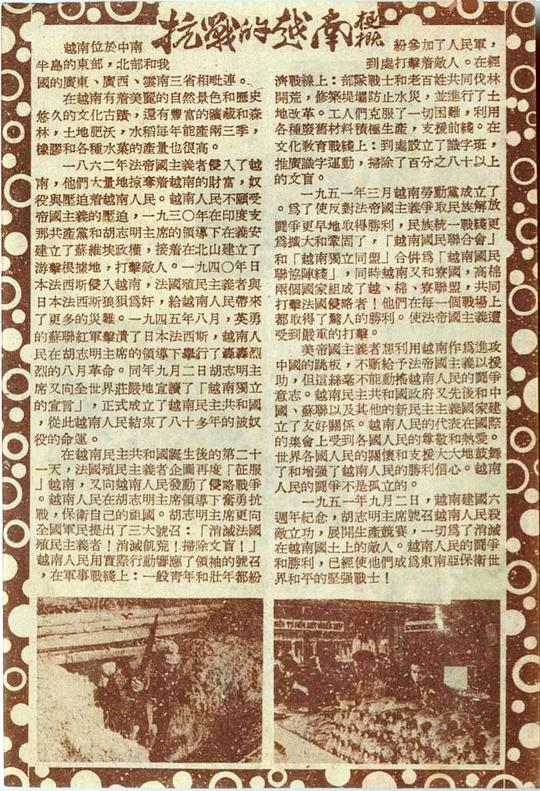 抗戰的越南
越南位於中南
半島的東部，北部和我
國的廣東、廣西、雲南三省相毗連。
在越南有着美麗的自然景色和歷史
悠久的文化古蹟，還有豐富的礦藏和森
林，土地肥沃，水稻每年能產兩三季，
橡膠和各種水菓的產量也很高。
一八六二年法帝國主義者侵入了越
南，他們大量地掠奪着越南的財富，奴
役與壓迫着越南人民。越南人民不願受
帝國主義的壓迫，一九三〇年在印度支
那共產黨和胡志明主席的領導下在義安
建立了蘇維埃政權，接着在北山建立了
游擊根據地，打擊敵人。一九四〇年日
本法西斯侵入越南，法國殖民主義者與
日本法西斯狼狽爲奸，給越南人民帶來
了更多的災難。一九四五年八月，英勇
的蘇聯紅軍擊潰了日本法西斯，越南人
民在胡志明主席的領導下舉行了轟轟烈
烈的八月革命。同年九月二日胡志明主
席又向全世界莊嚴地宣讀了「越南獨立
的宣言」，正式成立了越南民主共和國，
從此越南人民結束了八十多年的被奴
役的命運。
在越南民主共和國誕生後的第二十
一天，法國殖民主義者企圖再度「征服
」越南，又向越南人民發動了侵略戰爭
。越南人民在胡志明主席領導下奮勇抗
戰，保衛自己的祖國。胡志明主席更向
全國軍民提出了三大號召：「消滅法國
殖民主義者！消滅飢荒！掃除文盲！」
越南人民用實際行動響應了領袖的號召
，在軍事戰綫上：一般靑年和壯年都紛
紛參加了人民軍，
到處打擊着敵人。在經
濟戰線上：部隊戰士和老百姓共同伐林
開荒，修築堤壩防止水災，並進行了土
地改革。工人們克服了一切困難，利用
各種廢舊材料積極生產，支援前綫。在
文化敎育戰綫上：到處設立了識字班，
推廣識字運動，掃除了百分之八十以上
的文盲。
一九五一年三月越南勞動黨成立了
。爲了使反對法帝國主義爭取民族解放
鬪爭更早地取得勝利，民族統一戰綫更
爲擴大和鞏固了，「越南國民聯合會」
和「越南獨立同盟」合併爲「越南國民
聯協陣綫」，同時越南又和寮國，高棉
兩個國家組成了越、棉、寮聯盟，共同
打擊法國侵略者！他們在每一個戰場上
都取得了驚人的勝利。使法帝國主義遭
受到嚴重的打擊。
美帝國主義者想利用越南作爲進攻
中國的跳板，不斷給予法帝國主義以援
助，但這絲毫不能動搖越南人民的鬪爭
意志。越南民主共和國政府又先後和中
國、蘇聯以及其他的新民主主義國家建
立了友好關係。越南人民的代表在國際
的集會上受到各國人民的尊敬和熱愛。
世界各國人民的關懷和支援大大地鼓舞
了和增强了越南人民的勝利信心。越南
人民的鬪爭不是孤立的。
一九五一年九月二日，越南建國六
週年紀念，胡志明主席號召越南人民殺
敵立功，展開生產競賽，一切爲了消滅
在越南國土上的敵人。越南人民的鬪爭
和勝利，已經使他們成爲東南亞保衛世
界和平的堅强戰士！